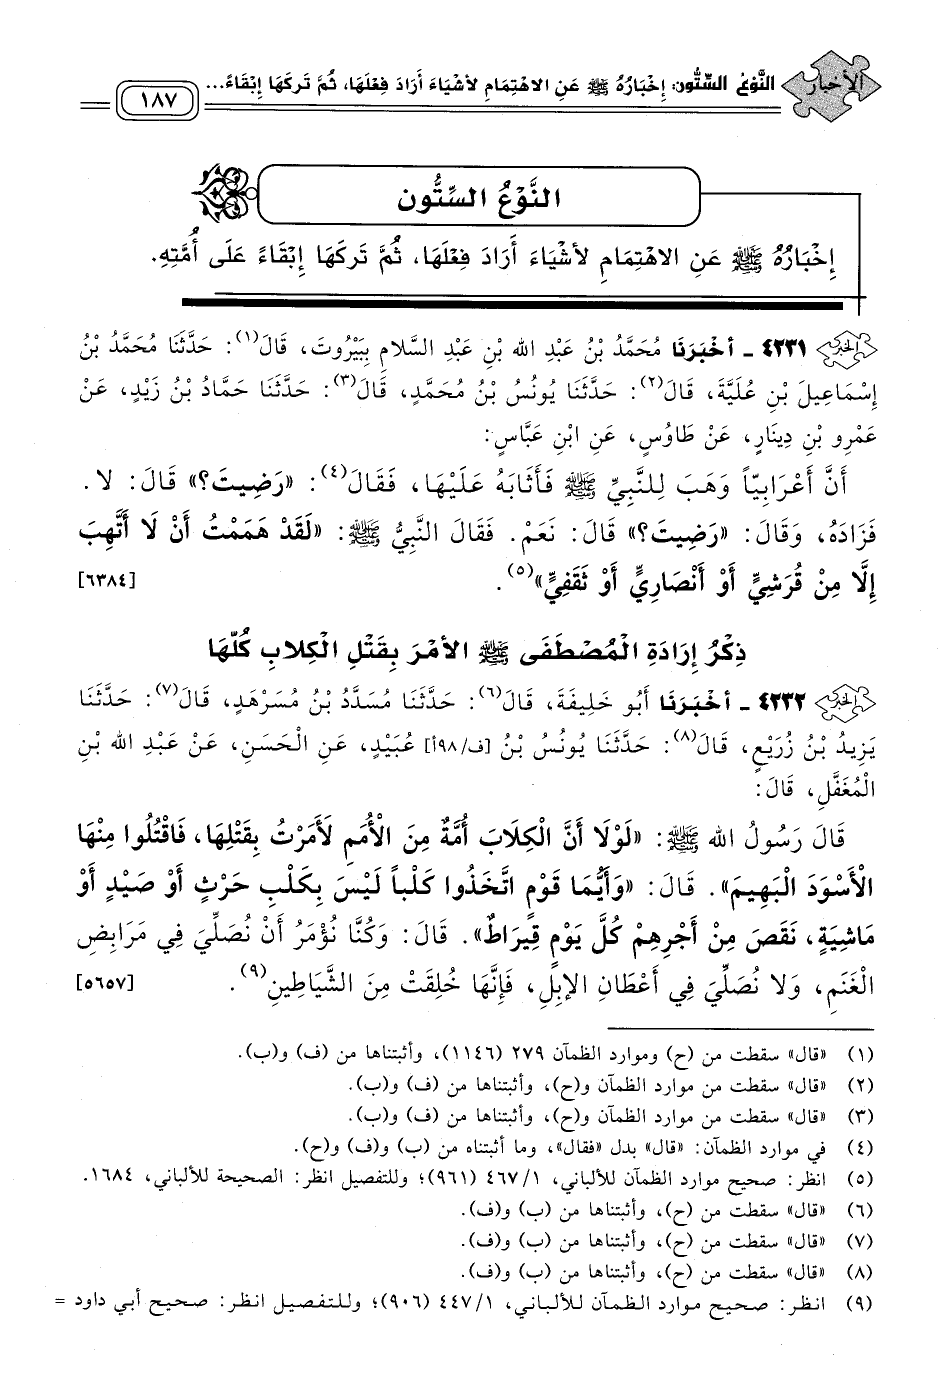 الأخبار
النَّوْعُ السِّتُّون: إِخْبَارُهُ ﷺ عَنِ الاهْتِمَامِ لأشْيَاءَ أَرَادَ فِعْلَهَا، ثُمَّ تَركَهَا إِبْقَاءً...
١٨٧
النَّوْعُ السِّتُّون
إِخْبَارُهُ ﷺ عَنِ الاهْتِمَامِ لأشْيَاءَ أَرَادَ فِعْلَهَا، ثُمَّ تَركَهَا إِبْقَاءً عَلَى أُمَّتِهِ.
٤٢٣١ - أخْبَرَنَا مُحَمَّدُ بْنُ عَبْدِ الله بْنِ عَبْدِ السَّلَامِ بِبَيْرُوتَ، قَالَ(١): حَدَّثَنَا مُحَمَّدُ بْنُ
إِسْمَاعِيلَ بْنِ عُلَيَّةَ، قَالَ(٢): حَدَّثَنَا يُونُسُ بْنُ مُحَمَّدٍ، قَالَ(٣): حَدَّثَنَا حَمَّادُ بْنُ زَيْدٍ، عَنْ
عَمْرِو بْنِ دِينَارٍ، عَنْ طَاوُسٍ، عَنِ ابْنِ عَبَّاسٍ:
أَنَّ أَعْرَابِيّاً وَهَبَ لِلنَّبِيِّ ﷺ فَأَثَابَهُ عَلَيْهَا، فَقَالَ(٤): «رَضِيتَ؟» قَالَ: لا.
فَزَادَهُ، وَقَالَ: «رَضِيتَ؟» قَالَ: نَعَمْ. فَقَالَ النَّبِيُّ ﷺ: «لَقَدْ هَمَمْتُ أَنْ لَا أَتَّهِبَ
إِلَّا مِنْ قُرَشِيٍّ أَوْ أَنْصَارِيٍّ أَوْ ثَقَفِيٍّ»(٥). [٦٣٨٤]
ذِكْرُ إِرَادَةِ الْمُصْطَفَى ﷺ الأمْرَ بِقَتْلِ الْكِلابِ كُلِّهَا
٤٢٣٢ - أخْبَرَنَا أَبُو خَلِيفَةَ، قَالَ(٦): حَدَّثَنَا مُسَدَّدُ بْنُ مُسَرْهَدٍ، قَالَ(٧): حَدَّثَنَا
يَزِيدُ بْنُ زُرَيْعٍ، قَالَ(٨): حَدَّثَنَا يُونُسُ بْنُ [ف/٩٨أ] عُبَيْدٍ، عَنِ الْحَسَنِ، عَنْ عَبْدِ الله بْنِ
الْمُغَفَّلِ، قَالَ:
قَالَ رَسُولُ الله ﷺ: «لَوْلَا أَنَّ الْكِلَابَ أُمَّةٌ مِنَ الْأُمَمِ لَأَمَرْتُ بِقَتْلِهَا، فَاقْتُلُوا مِنْهَا
الْأَسْوَدَ الْبَهِيمَ». قَالَ: «وَأَيُّمَا قَوْمٍ اتَّخَذُوا كَلْباً لَيْسَ بِكَلْبِ حَرْثٍ أَوْ صَيْدٍ أَوْ
مَاشِيَةٍ، نَقَصَ مِنْ أَجْرِهِمْ كُلَّ يَوْمٍ قِيرَاطٌ». قَالَ: وَكُنَّا نُؤْمَرُ أَنْ نُصَلِّيَ فِي مَرَابِضِ
الْغَنَمِ، وَلا نُصَلِّيَ فِي أَعْطَانِ الإبِلِ، فَإِنَّهَا خُلِقَتْ مِنَ الشَّيَاطِينِ(٩). [٥٦٥٧]
(١) «قال» سقطت من (ح) وموارد الظمآن ٢٧٩ (١١٤٦)، وأثبتناها من (ف) و(ب).
(٢) «قال» سقطت من موارد الظمآن و(ح)، وأثبتناها من (ف) و(ب).
(٣) «قال» سقطت من موارد الظمآن و(ح)، وأثبتناها من (ف) و(ب).
(٤) في موارد الظمآن: «قال» بدل «فقال»، وما أثبتناه من (ب) و(ف) و(ح).
(٥) انظر: صحيح موارد الظمآن للألباني، ٤٦٧/١ (٩٦١)؛ وللتفصيل انظر: الصحيحة للألباني، ١٦٨٤.
(٦) «قال» سقطت من (ح)، وأثبتناها من (ب) و(ف).
(٧) «قال» سقطت من (ح)، وأثبتناها من (ب) و(ف).
(٨) «قال» سقطت من (ح)، وأثبتناها من (ب) و(ف).
(٩) انظر: صحيح موارد الظمآن للألباني، ٤٤٧/١ (٩٠٦)؛ وللتفصيل انظر: صحيح أبي داود =